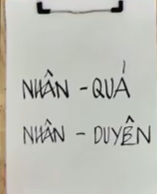 NHÂN - QUẢ
NHÂN - DUYÊN